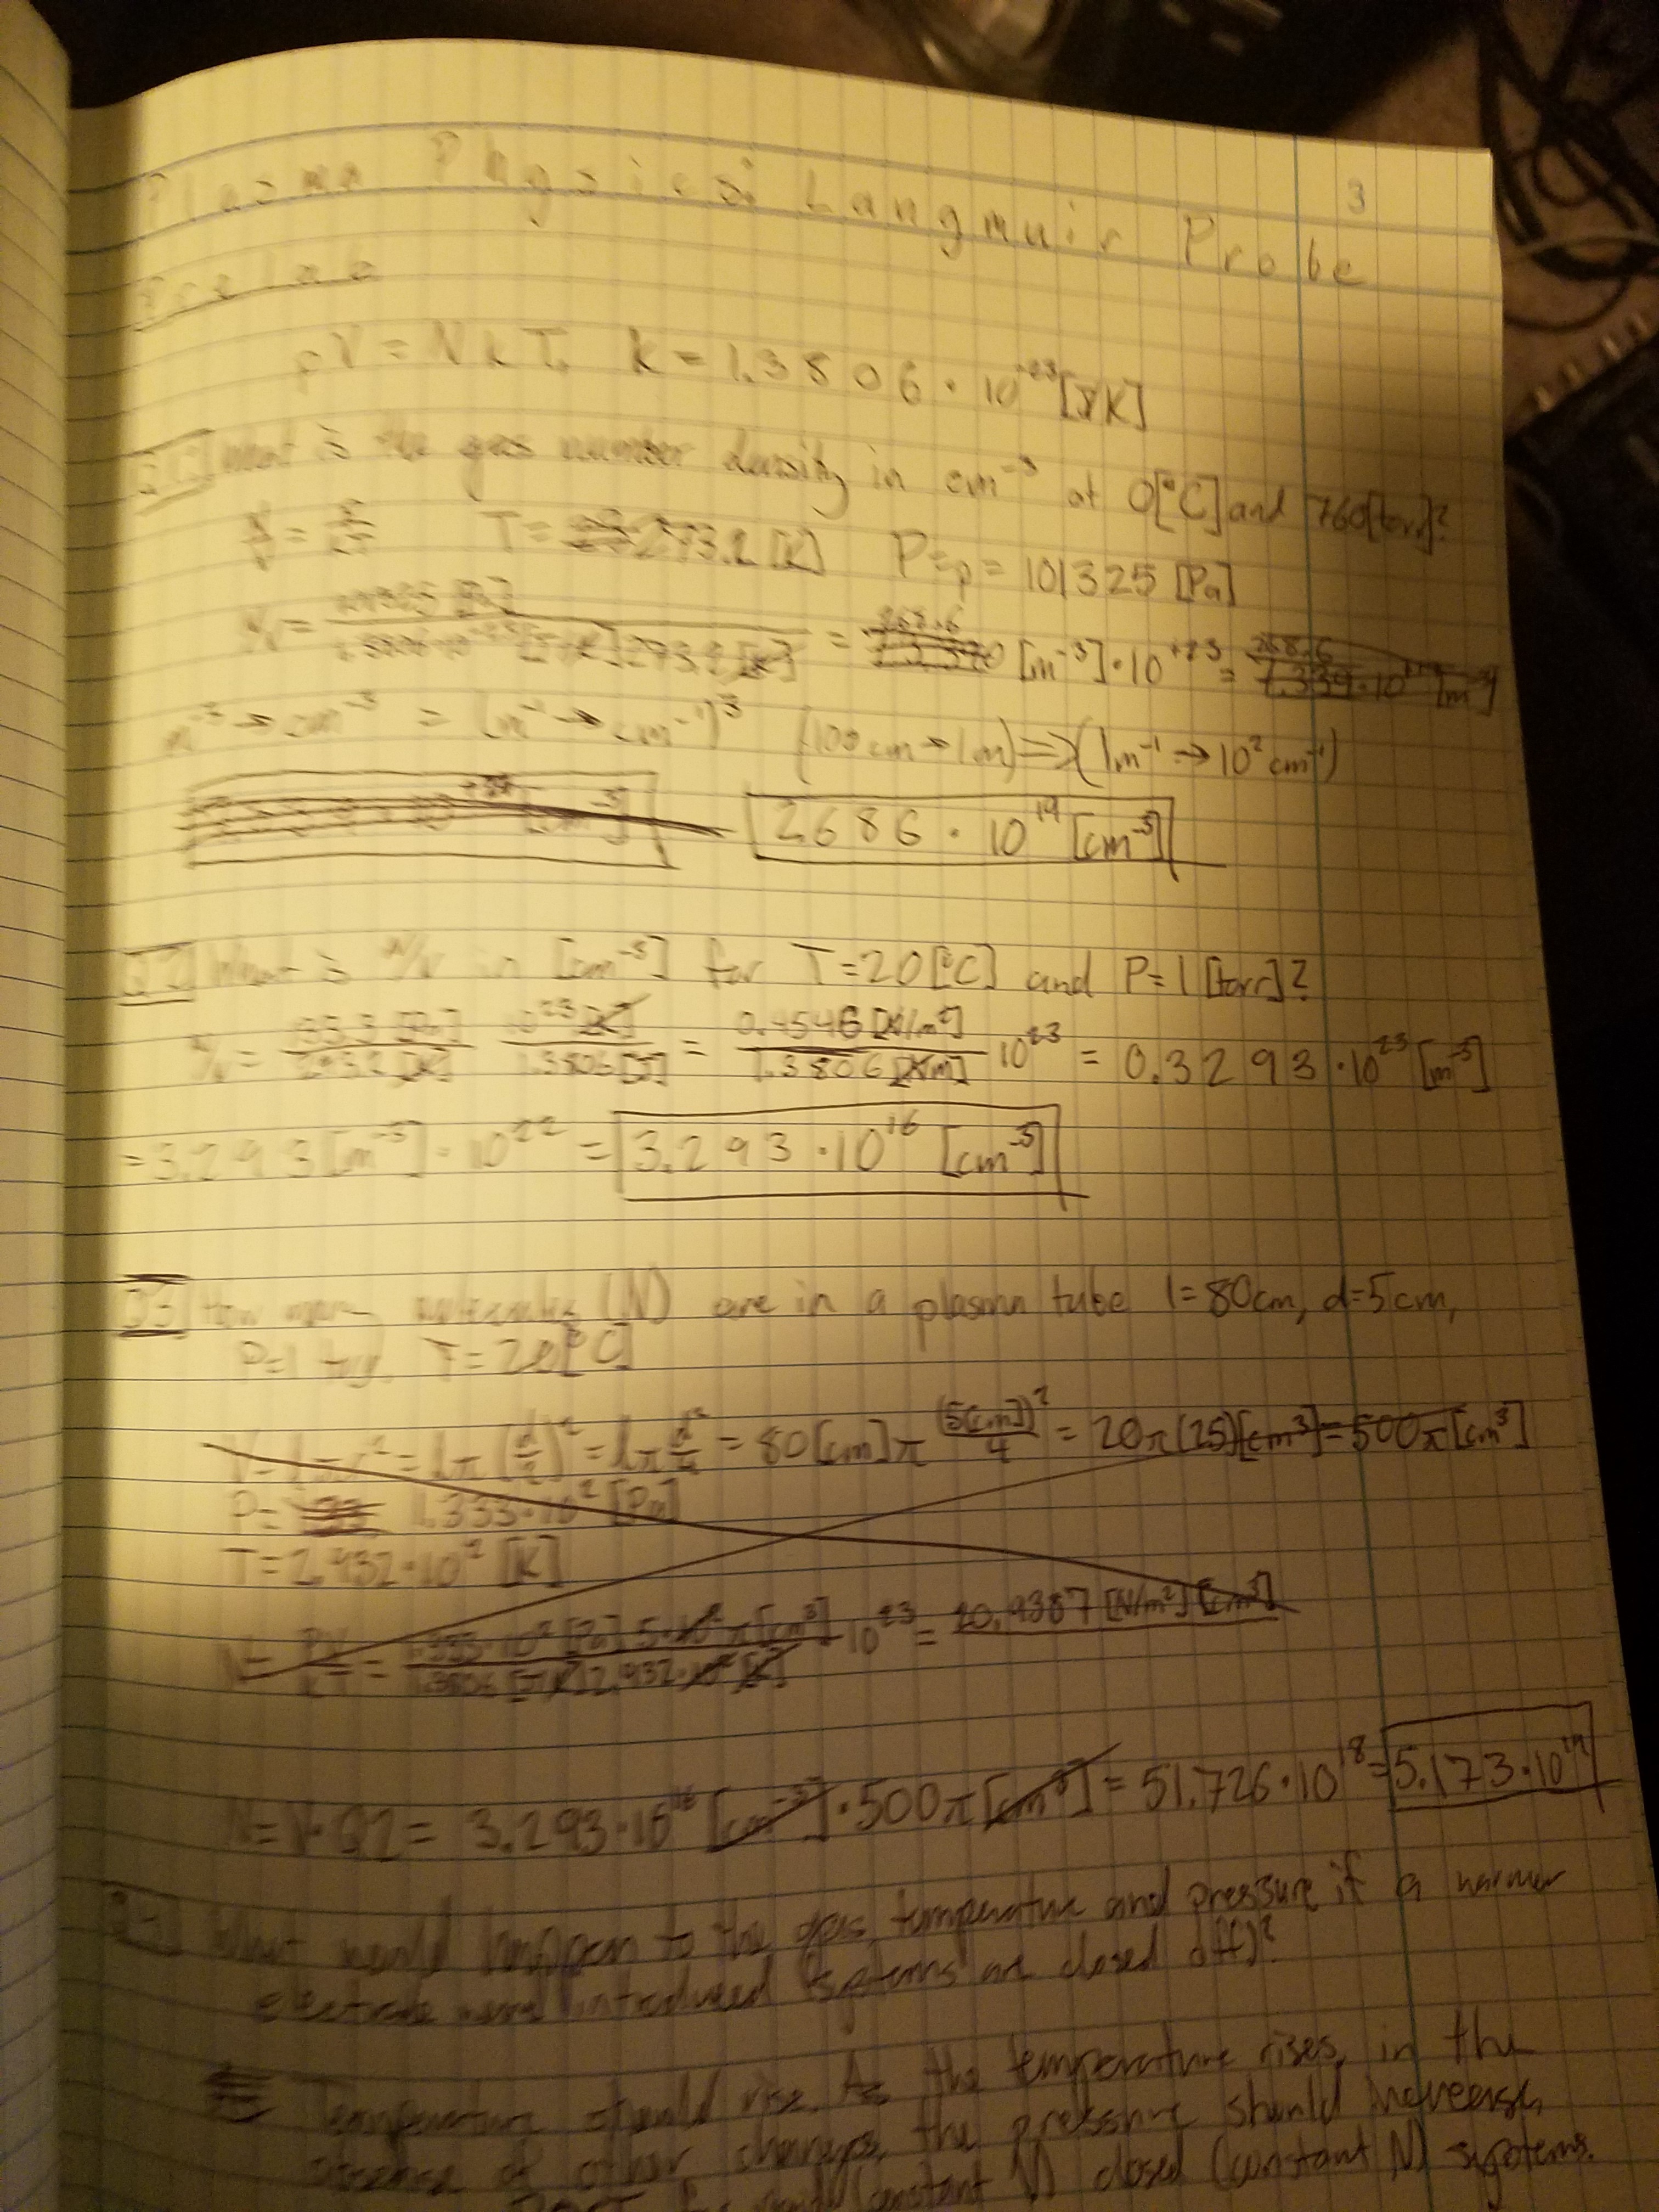 3
Plasma Physics: Langmuir Probe
Prelab
pV = NkT. k = 1.3806 · 10^-23 [J/K]
What is the gas number density in cm^-3 at 0[°C] and 760[torr]?
T = 273.2 [K] P = p = 101325 [Pa]
N/V = 101325 [Pa] / 1.3806·10^-23 [J/K] 273.2 [K] = 268.6 [m^-3] · 10^+23 = 268.6
m^-3 → cm^-3 = (m^-1 → cm^-1)^3 (100cm → 1m) => (1m^-1 → 10^2 cm^-1)
2686 · 10^19 [cm^-3]
Q2 What is N/V in [cm^-3] for T=20[°C] and P=1[torr]?
N/V = 133.3 [Pa] / 293.2 [K] 10^23 [K] / 1.3806 [J] = 0.4546 [N/m^2] / 1.3806 [Nm] 10^23 = 0.3293 · 10^23 [m^-3]
= 3.293 [m^-3] · 10^22 = 3.293 · 10^16 [cm^-3]
Q3 How many molecules (N) are in a plasma tube l=80cm, d=5cm,
P=1 torr. T=20[°C]
V = lπr^2 = lπ(d/2)^2 = lπ d^2/4 = 80[cm]π (5[cm])^2/4 = 20π(25)[cm^3] = 500π[cm^3]
P = 1.333·10^2 [Pa]
T = 2.932·10^2 [K]
N = PV/kT = 1.333·10^2 [Pa] 5·10^2 π[cm^3] / 1.3806 [J/K] 2.932·10^2 [K] 10^23 = 20.9387 [N/m^2] [cm^3]
N = V·Q2 = 3.293·10^16 [cm^-3] · 500π[cm^3] = 51.726·10^18 = 5.173·10^19
What would happen to the gas temperature and pressure if a warmer
electrode were introduced (systems are closed off)?
Temperature should rise. As the temperature rises, in the
absense of other changes, the pressure should increase,
constant closed (constant N) systems.